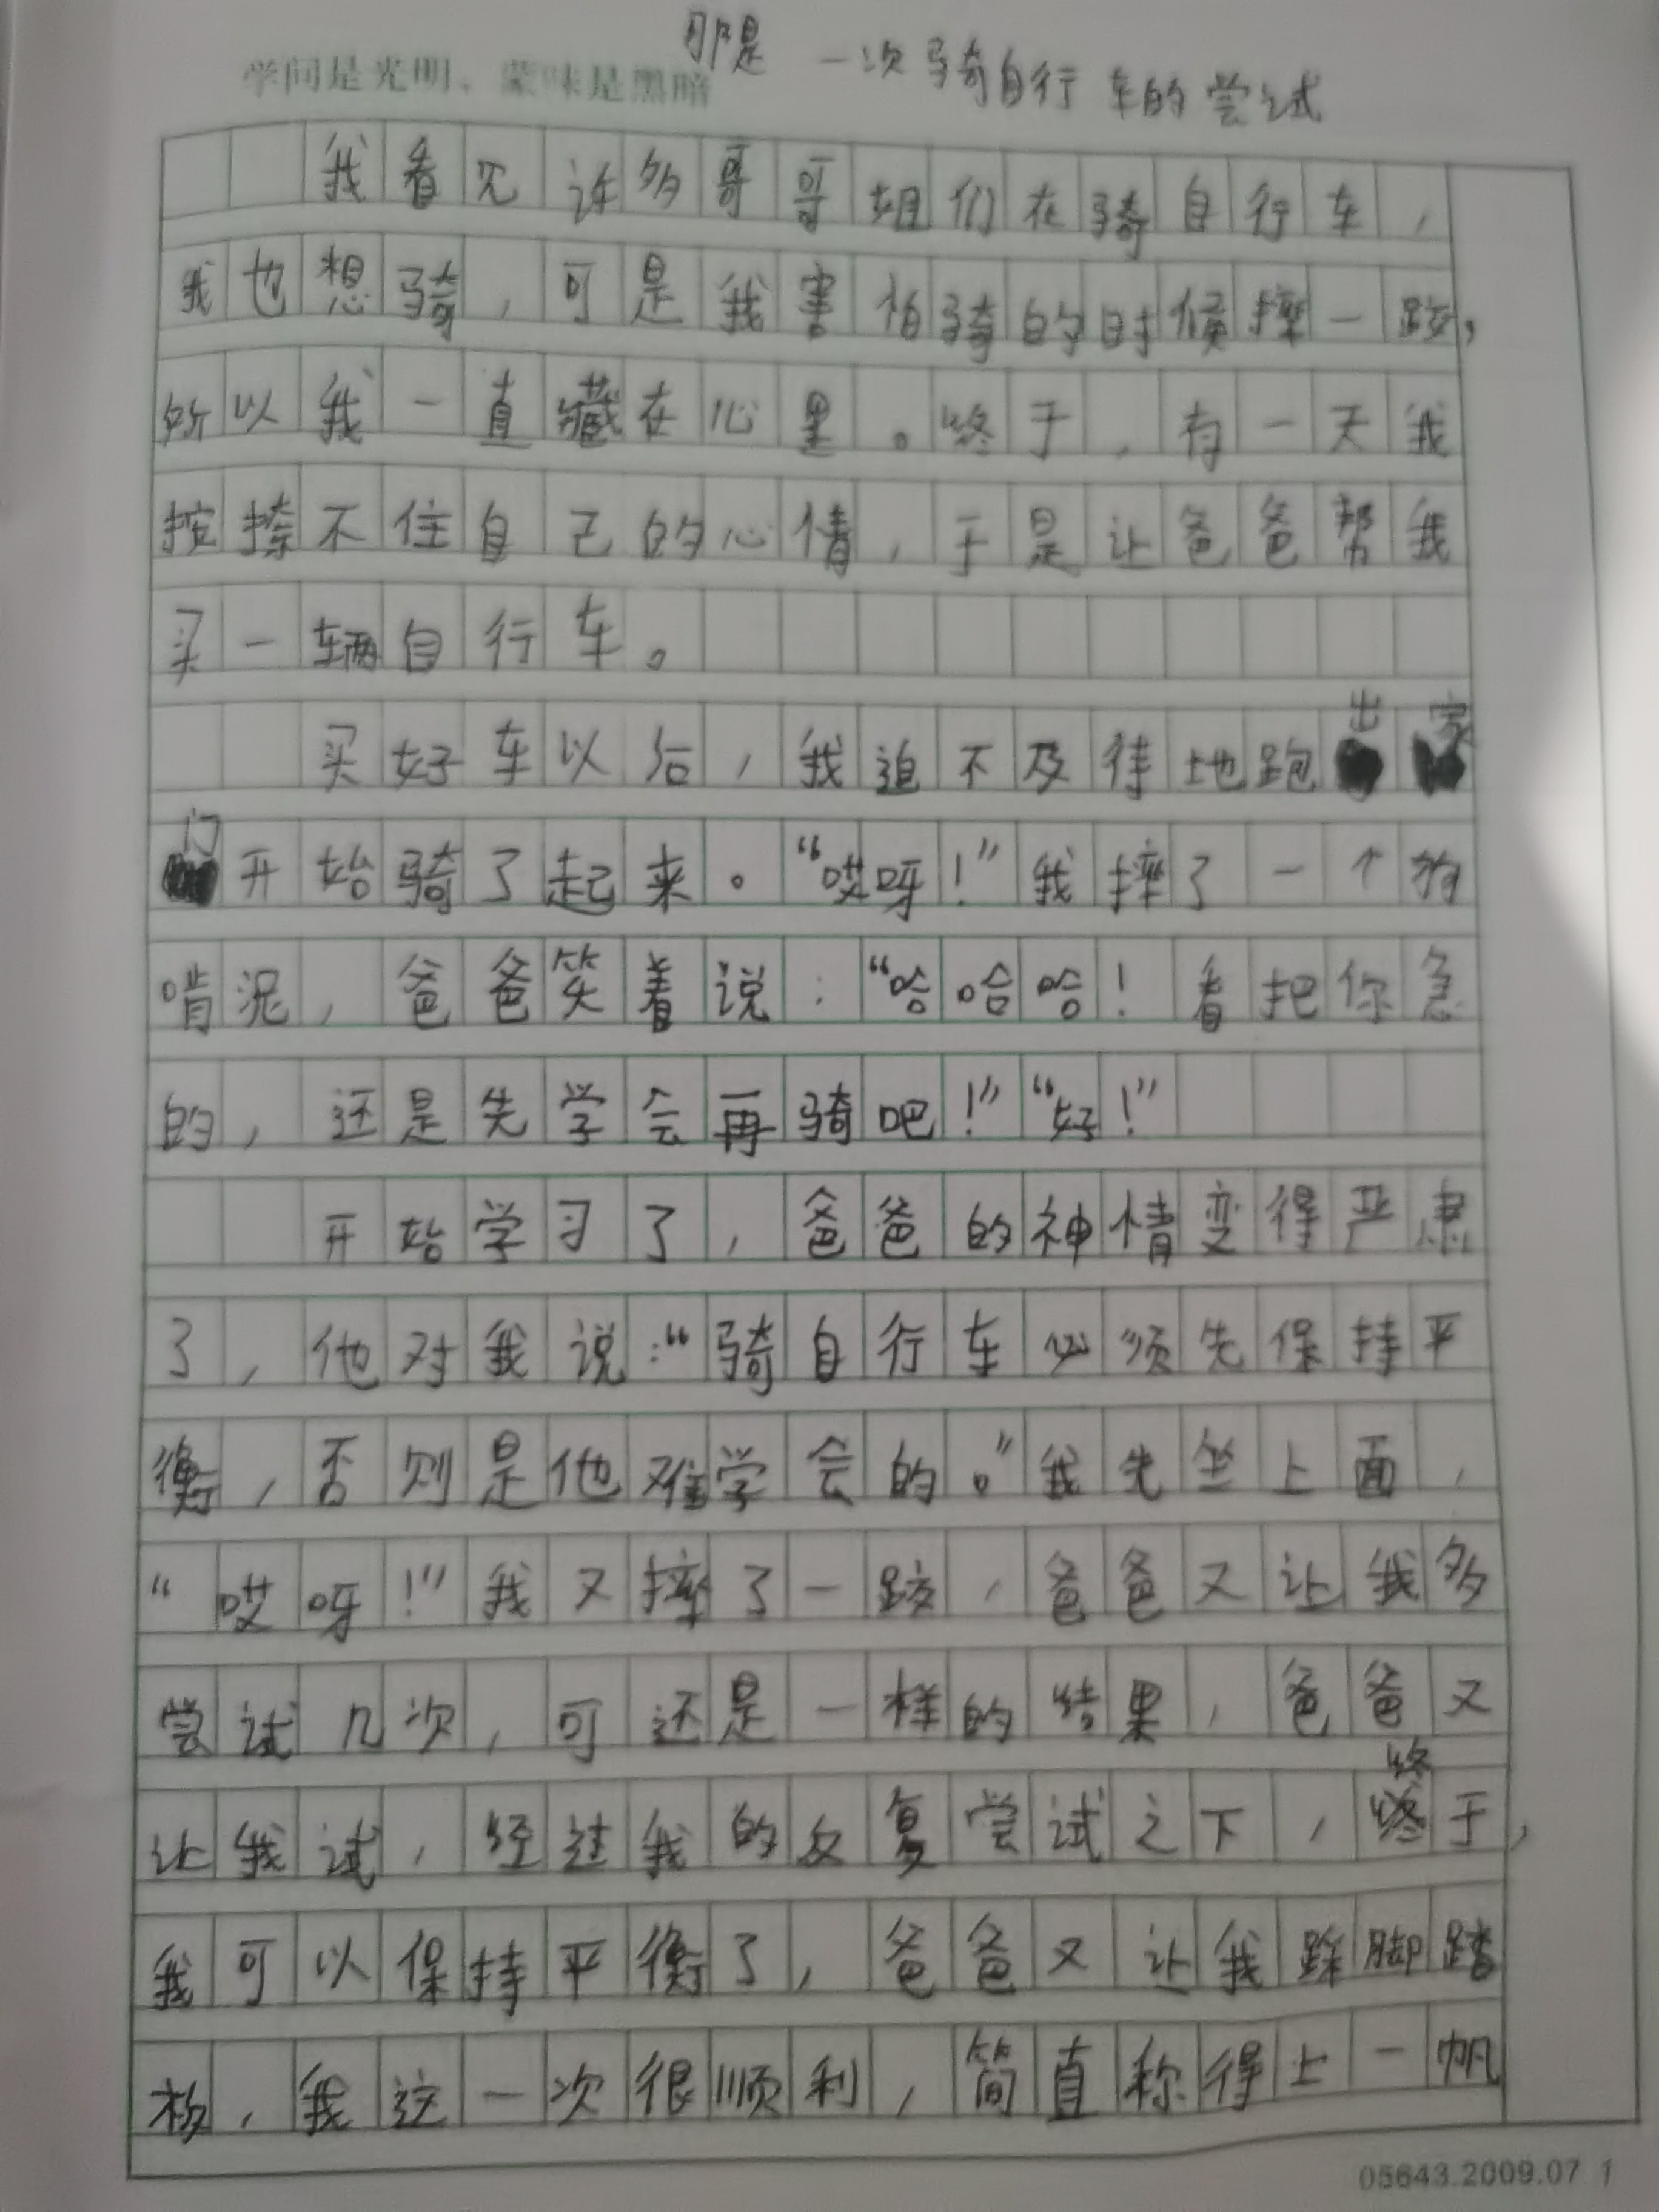 那是一次骑自行车的尝试
学问是光明，蒙昧是黑暗
我看见许多哥哥姐们在骑自行车，
我也想骑，可是我害怕骑的时候摔一跤，
所以我一直藏在心里。终于，有一天我
按捺不住自己的心情，于是让爸爸帮我
买一辆自行车。
买好车以后，我迫不及待地跑出家
门开始骑了起来。“哎呀！”我摔了一个狗
啃泥，爸爸笑着说：“哈哈哈！看把你急
的，还是先学会再骑吧！”“好！”
开始学习了，爸爸的神情变得严肃
了，他对我说：“骑自行车必须先保持平
衡，否则是他难学会的。”我先坐上面，
“哎呀！”我又摔了一跤，爸爸又让我多
尝试几次，可还是一样的结果，爸爸又
让我试，经过我的反复尝试之下，终于，
我可以保持平衡了，爸爸又让我踩脚踏
板，我这一次很顺利，简直称得上一帆
05643.2009.07 1